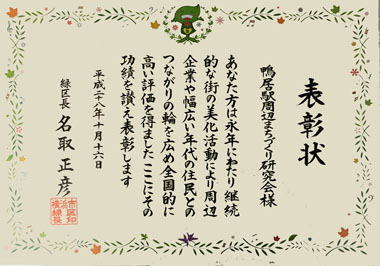 表彰状
鴨居駅周辺まちづくり研究会様
あなた方は永年にわたり継続
的な街の美化活動により周辺
企業や幅広い年代の住民との
つながりの輪を広め全国的に
高い評価を得ました ここにその
功績を讃え表彰します
平成二十八年十月十六日
緑区長 名取正彦
横浜市緑区長印